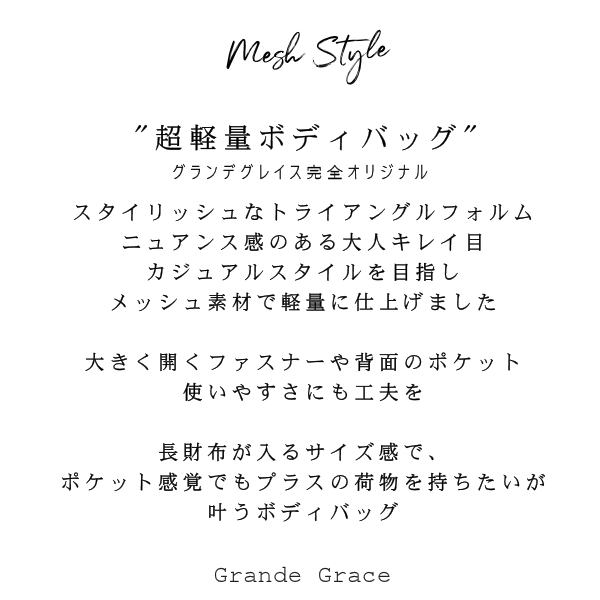 Mesh Style
"超軽量ボディバッグ"
グランデグレイス完全オリジナル
スタイリッシュなトライアングルフォルム
ニュアンス感のある大人キレイ目
カジュアルスタイルを目指し
メッシュ素材で軽量に仕上げました
大きく開くファスナーや背面のポケット
使いやすさにも工夫を
長財布が入るサイズ感で、
ポケット感覚でもプラスの荷物を持ちたいが
叶うボディバッグ
Grande Grace